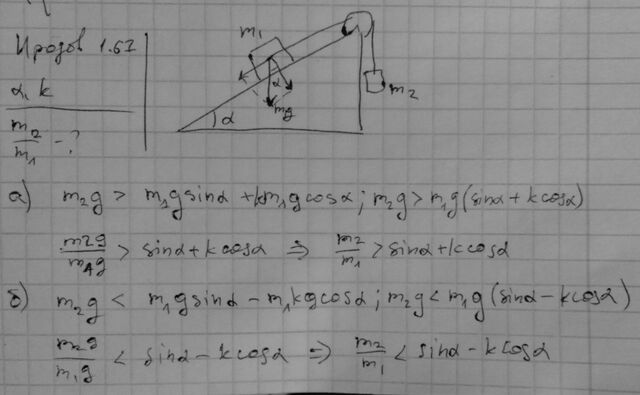 m₁
Иродов 1.67
α, k
m₂/m₁ - ?
α
mg
α
m₂
а) m₂g > m₁g sinα + km₁g cosα; m₂g > m₁g(sinα + k cosα)
m₂g/m₁g > sinα + k cosα ⇒ m₂/m₁ > sinα + k cosα
б) m₂g < m₁g sinα - m₁kg cosα; m₂g < m₁g(sinα - k cosα)
m₂g/m₁g < sinα - k cosα ⇒ m₂/m₁ < sinα - k cosα